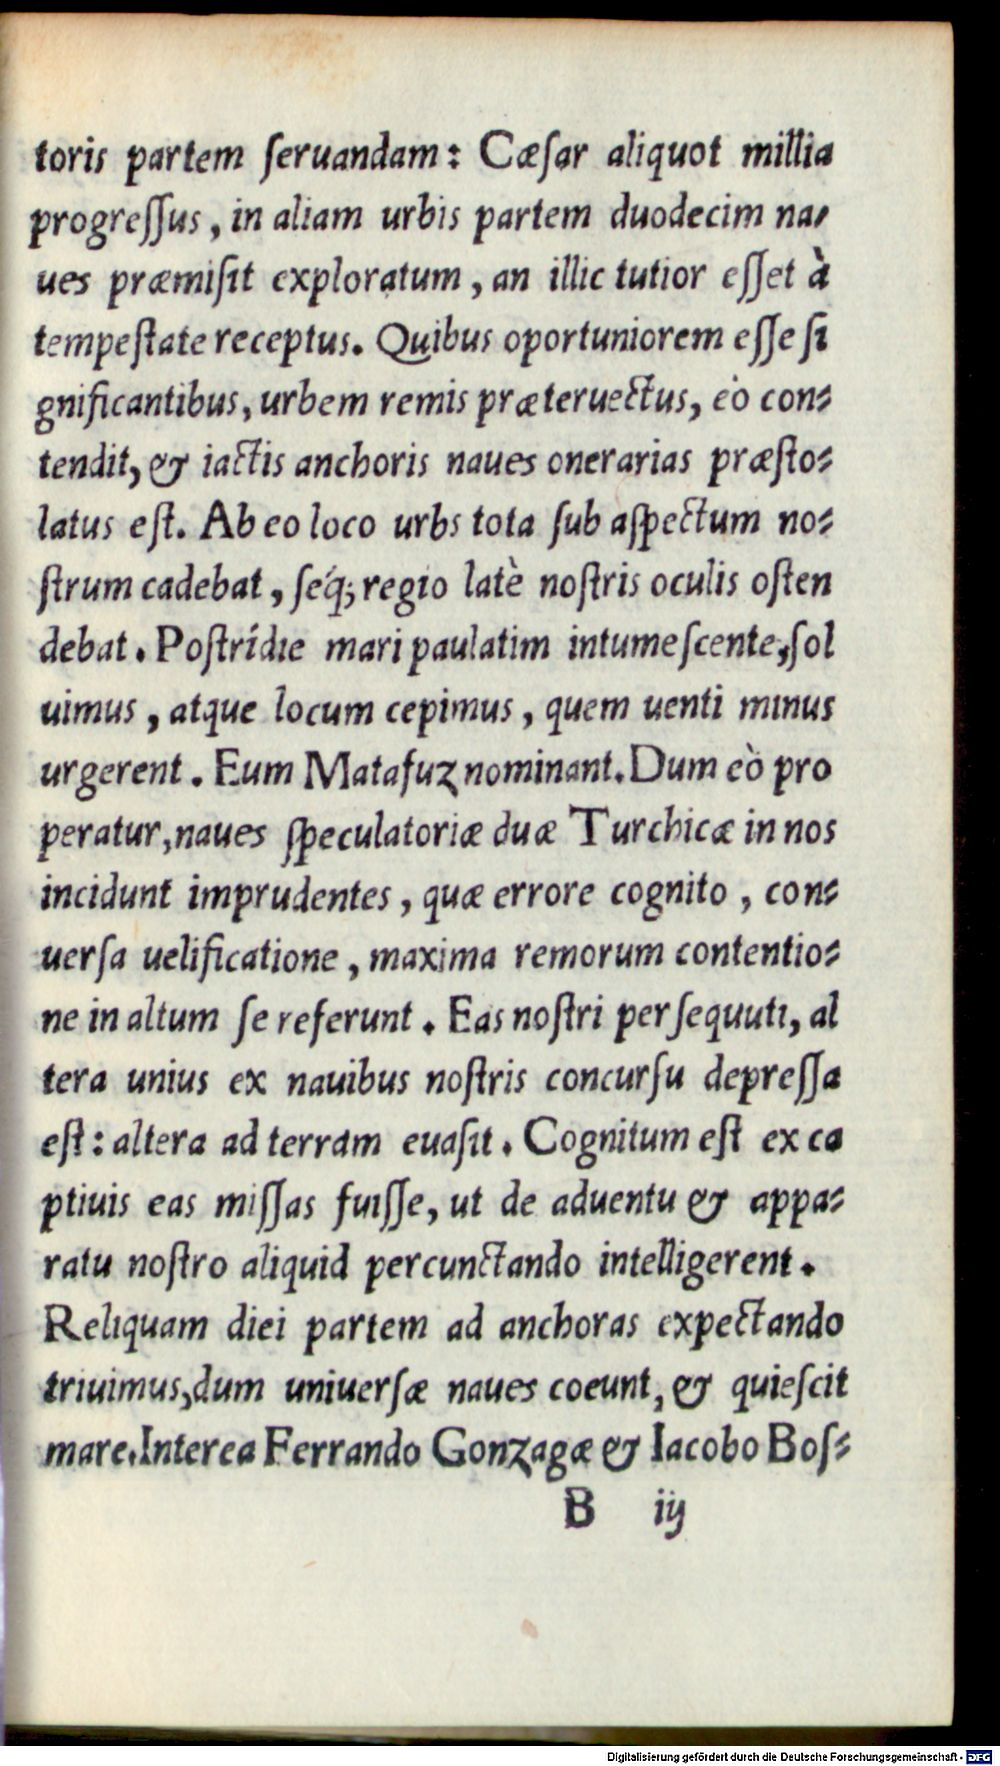 toris partem ſeruandam: Cæſar aliquot millia
progreſſus, in aliam urbis partem duodecim na-
ues præmiſit exploratum, an illic tutior eſſet à
tempeſtate receptus. Quibus oportuniorem eſſe ſi
gnificantibus, urbem remis præteruectus, eò con-
tendit, & iactis anchoris naues onerarias præſto-
latus eſt. Ab eo loco urbs tota ſub aſpectum no-
ſtrum cadebat, ſeq́; regio latè noſtris oculis oſten
debat. Poſtrídie mari paulatim intumeſcente, ſol
uimus, atque locum cepimus, quem uenti minus
urgerent. Eum Matafuz nominant. Dum eò pro
peratur, naues ſpeculatoriæ duæ Turchicæ in nos
incidunt imprudentes, quæ errore cognito, con-
uerſa uelificatione, maxima remorum contentio-
ne in altum ſe referunt. Eas noſtri perſequuti, al
tera unius ex nauibus noſtris concurſu depreſſa
eſt: altera ad terram euaſit. Cognitum eſt ex ca
ptiuis eas miſſas fuiſſe, ut de aduentu & appa-
ratu noſtro aliquid percunctando intelligerent.
Reliquam diei partem ad anchoras expectando
triuimus, dum uniuerſæ naues coeunt, & quieſcit
mare. Interea Ferrando Gonzagæ & Iacobo Boſ-
B iij
Digitalisierung gefördert durch die Deutsche Forschungsgemeinschaft - DFG